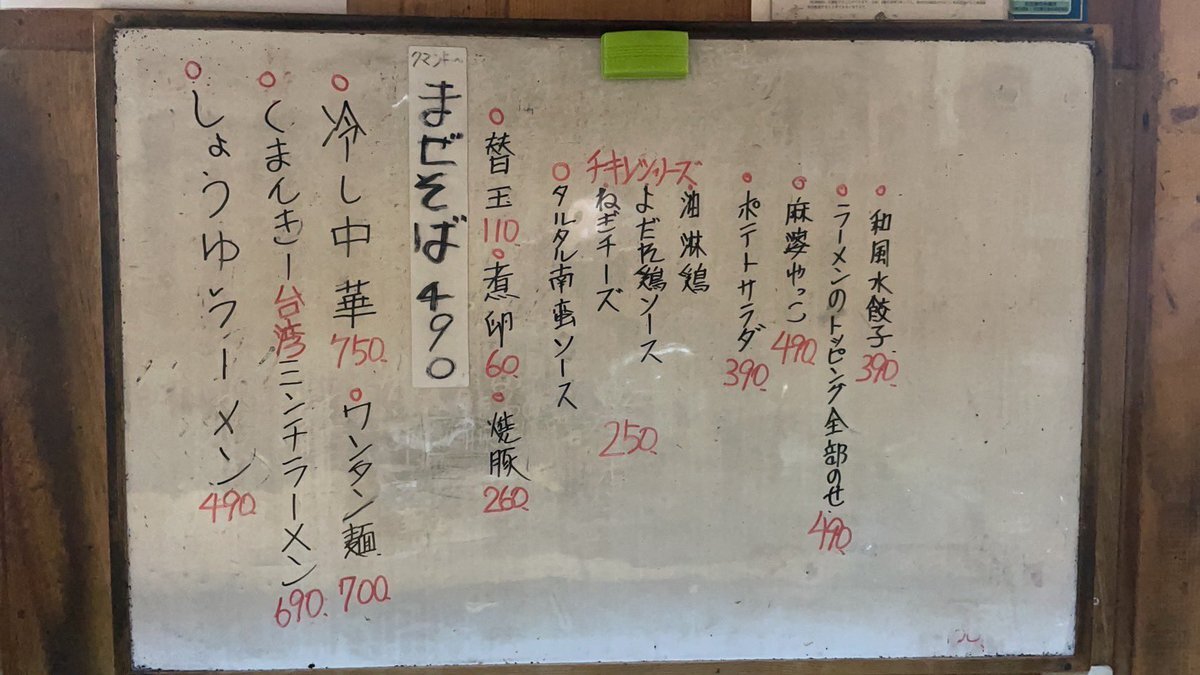 ○和風水餃子 390.
○ラーメンのトッピング全部のせ 490.
○麻婆やっこ 490.
○ポテトサラダ 390.
チキレツシリーズ
・油淋鶏
・よだれ鶏ソース
・ねぎチーズ
250.
○タルタル南蛮ソース
○替玉 110. ○煮卵 60. ○焼豚 260.
まぜそば 490
○冷し中華 750. ○ワンタン麺 700.
○くまんきー台湾ミンチラーメン 690.
○しょうゆラーメン 490.